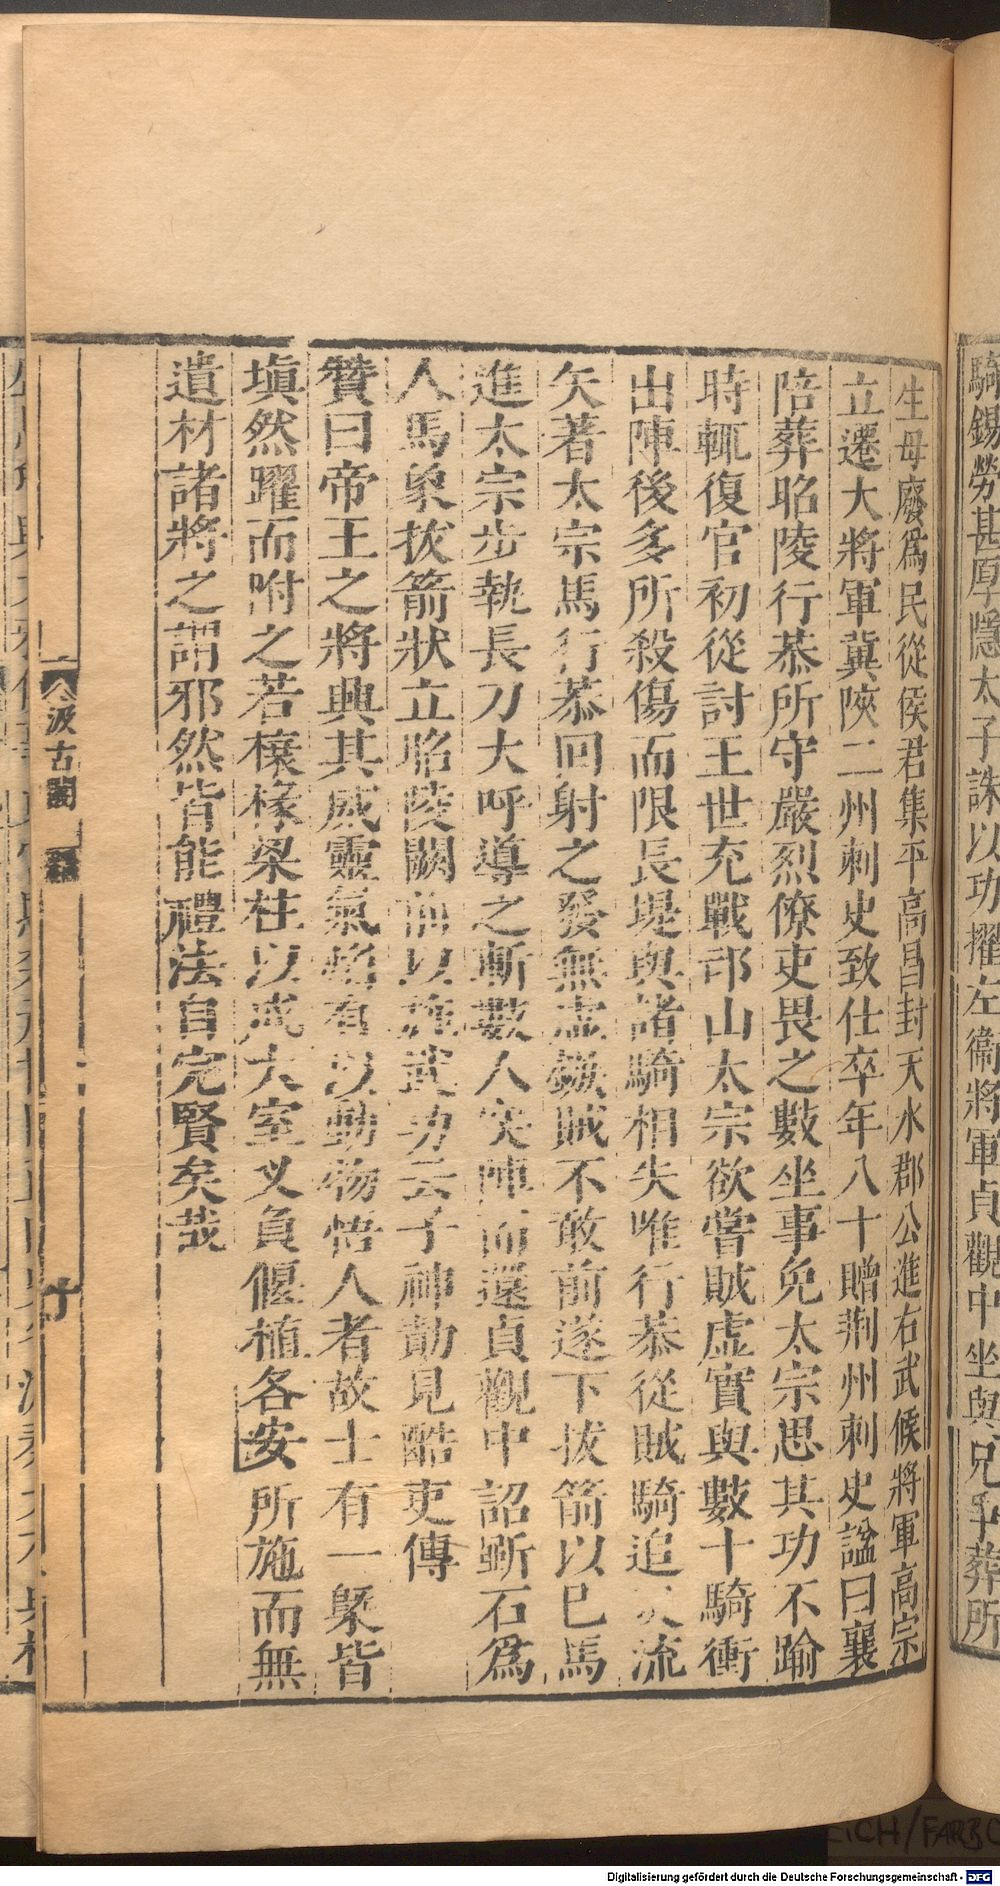 騎錫勞甚厚隱太子誅以功擢左衞將軍貞觀中坐與兄爭葬所
生母廢爲民從侯君集平高昌封天水郡公進右武候將軍高宗
立遷大將軍冀陝二州刺史致仕卒年八十贈荆州刺史諡曰襄
陪葬昭陵行恭所守嚴烈僚吏畏之數坐事免太宗思其功不踰
時輒復官初從討王世充戰邙山太宗欲嘗賊虛實與數十騎衝
出陣後多所殺傷而限長堤與諸騎相失唯行恭從賊騎追及流
矢著太宗馬行恭回射之發無虛鏃賊不敢前遂下拔箭以己馬
進太宗步執長刀大呼導之斬數人突陣而還貞觀中詔斲石爲
人馬象拔箭狀立昭陵闕前以旌武功云子神勣見酷吏傳
贊曰帝王之將興其威靈氣燄有以動物悟人者故士有一槩皆
塡然躍而咐之若榱椽梁柱以成大室又負偃植各安所施而無
遺材諸將之謂邪然皆能禮法自完賢矣哉
汲古閣
Digitalisierung gefördert durch die Deutsche Forschungsgemeinschaft - DFG